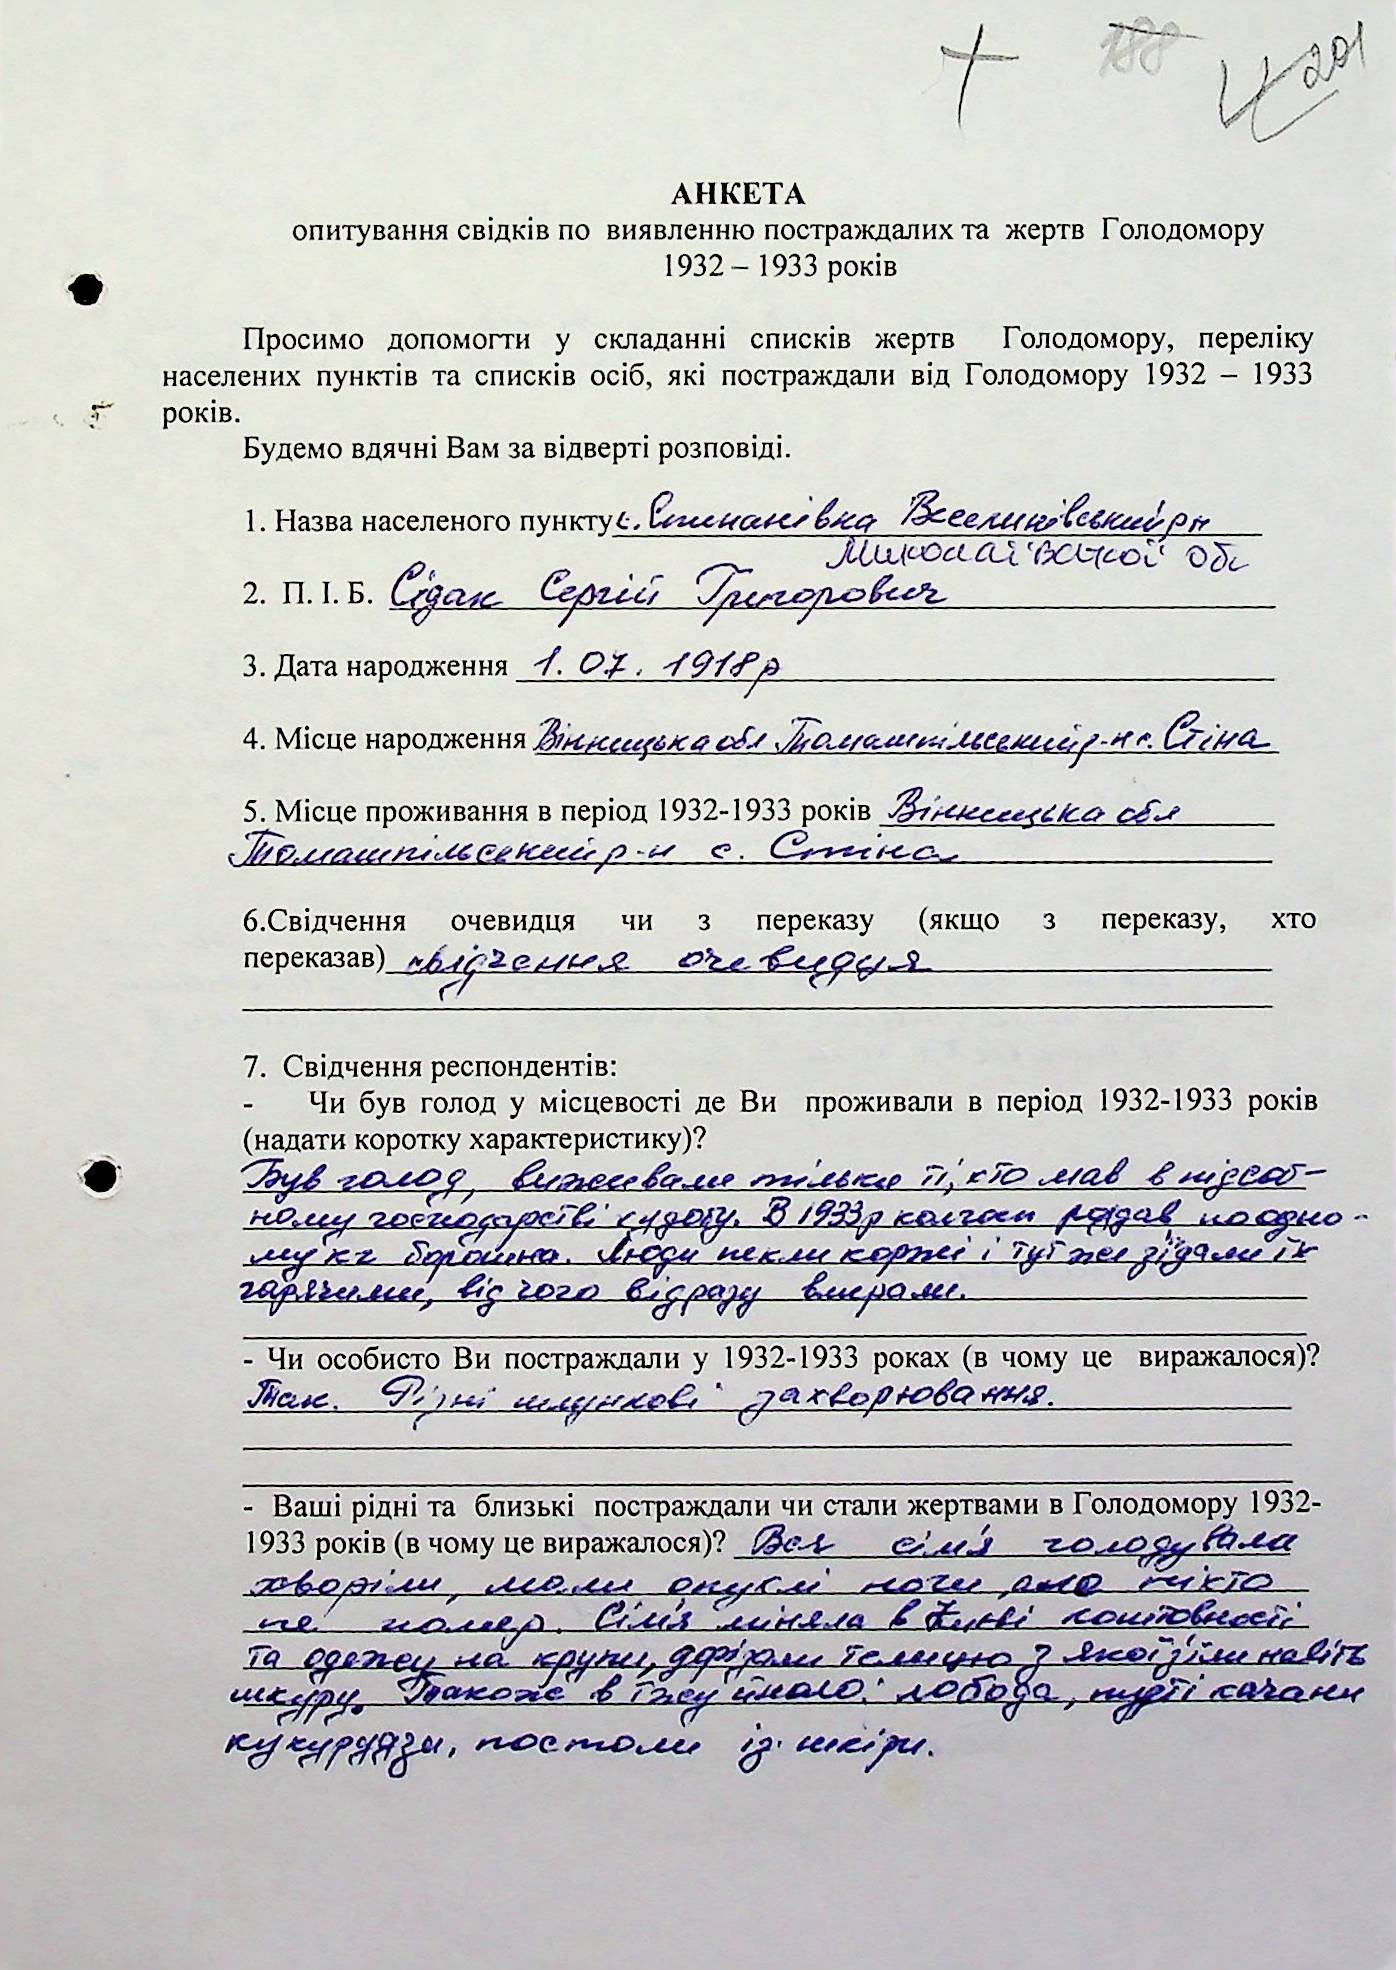 188
201
АНКЕТА
опитування свідків по виявленню постраждалих та жертв Голодомору
1932 – 1933 років
Просимо допомогти у складанні списків жертв Голодомору, переліку
населених пунктів та списків осіб, які постраждали від Голодомору 1932 – 1933
років.
Будемо вдячні Вам за відверті розповіді.
1. Назва населеного пункту с. Степанівка Веселинівський рн
Миколаївської обл
2. П. І. Б. Сідак Сергій Григорович
3. Дата народження 1. 07. 1918р
4. Місце народження Вінницька обл Томашпільський р-н с. Стіна
5. Місце проживання в період 1932-1933 років Вінницька обл
Томашпільський р-н с. Стіна
6.Свідчення очевидця чи з переказу (якщо з переказу, хто
переказав) свідчення очевидця
7. Свідчення респондентів:
- Чи був голод у місцевості де Ви проживали в період 1932-1933 років
(надати коротку характеристику)?
Був голод, виживали тільки ті, хто мав в підсоб-
ному господарстві худобу. В 1933р колгосп роздав по одно-
му кг борошна. Люди пекли коржі і тут же з'їдали їх
гарячими, від чого відразу вмирали.
- Чи особисто Ви постраждали у 1932-1933 роках (в чому це виражалося)?
Так. Різні шлункові захворювання.
- Ваші рідні та близькі постраждали чи стали жертвами в Голодомору 1932-
1933 років (в чому це виражалося)? Вся сім'я голодувала
хворіли, мали опухлі ноги, але ніхто
не помер. Сім'я міняла в Києві коштовності
та одежу на крупи, дорізали телицю з якої їли навіть
шкуру. Також в їжу йшло: лобода, терті качани
кукурудзи, постоли із шкіри.